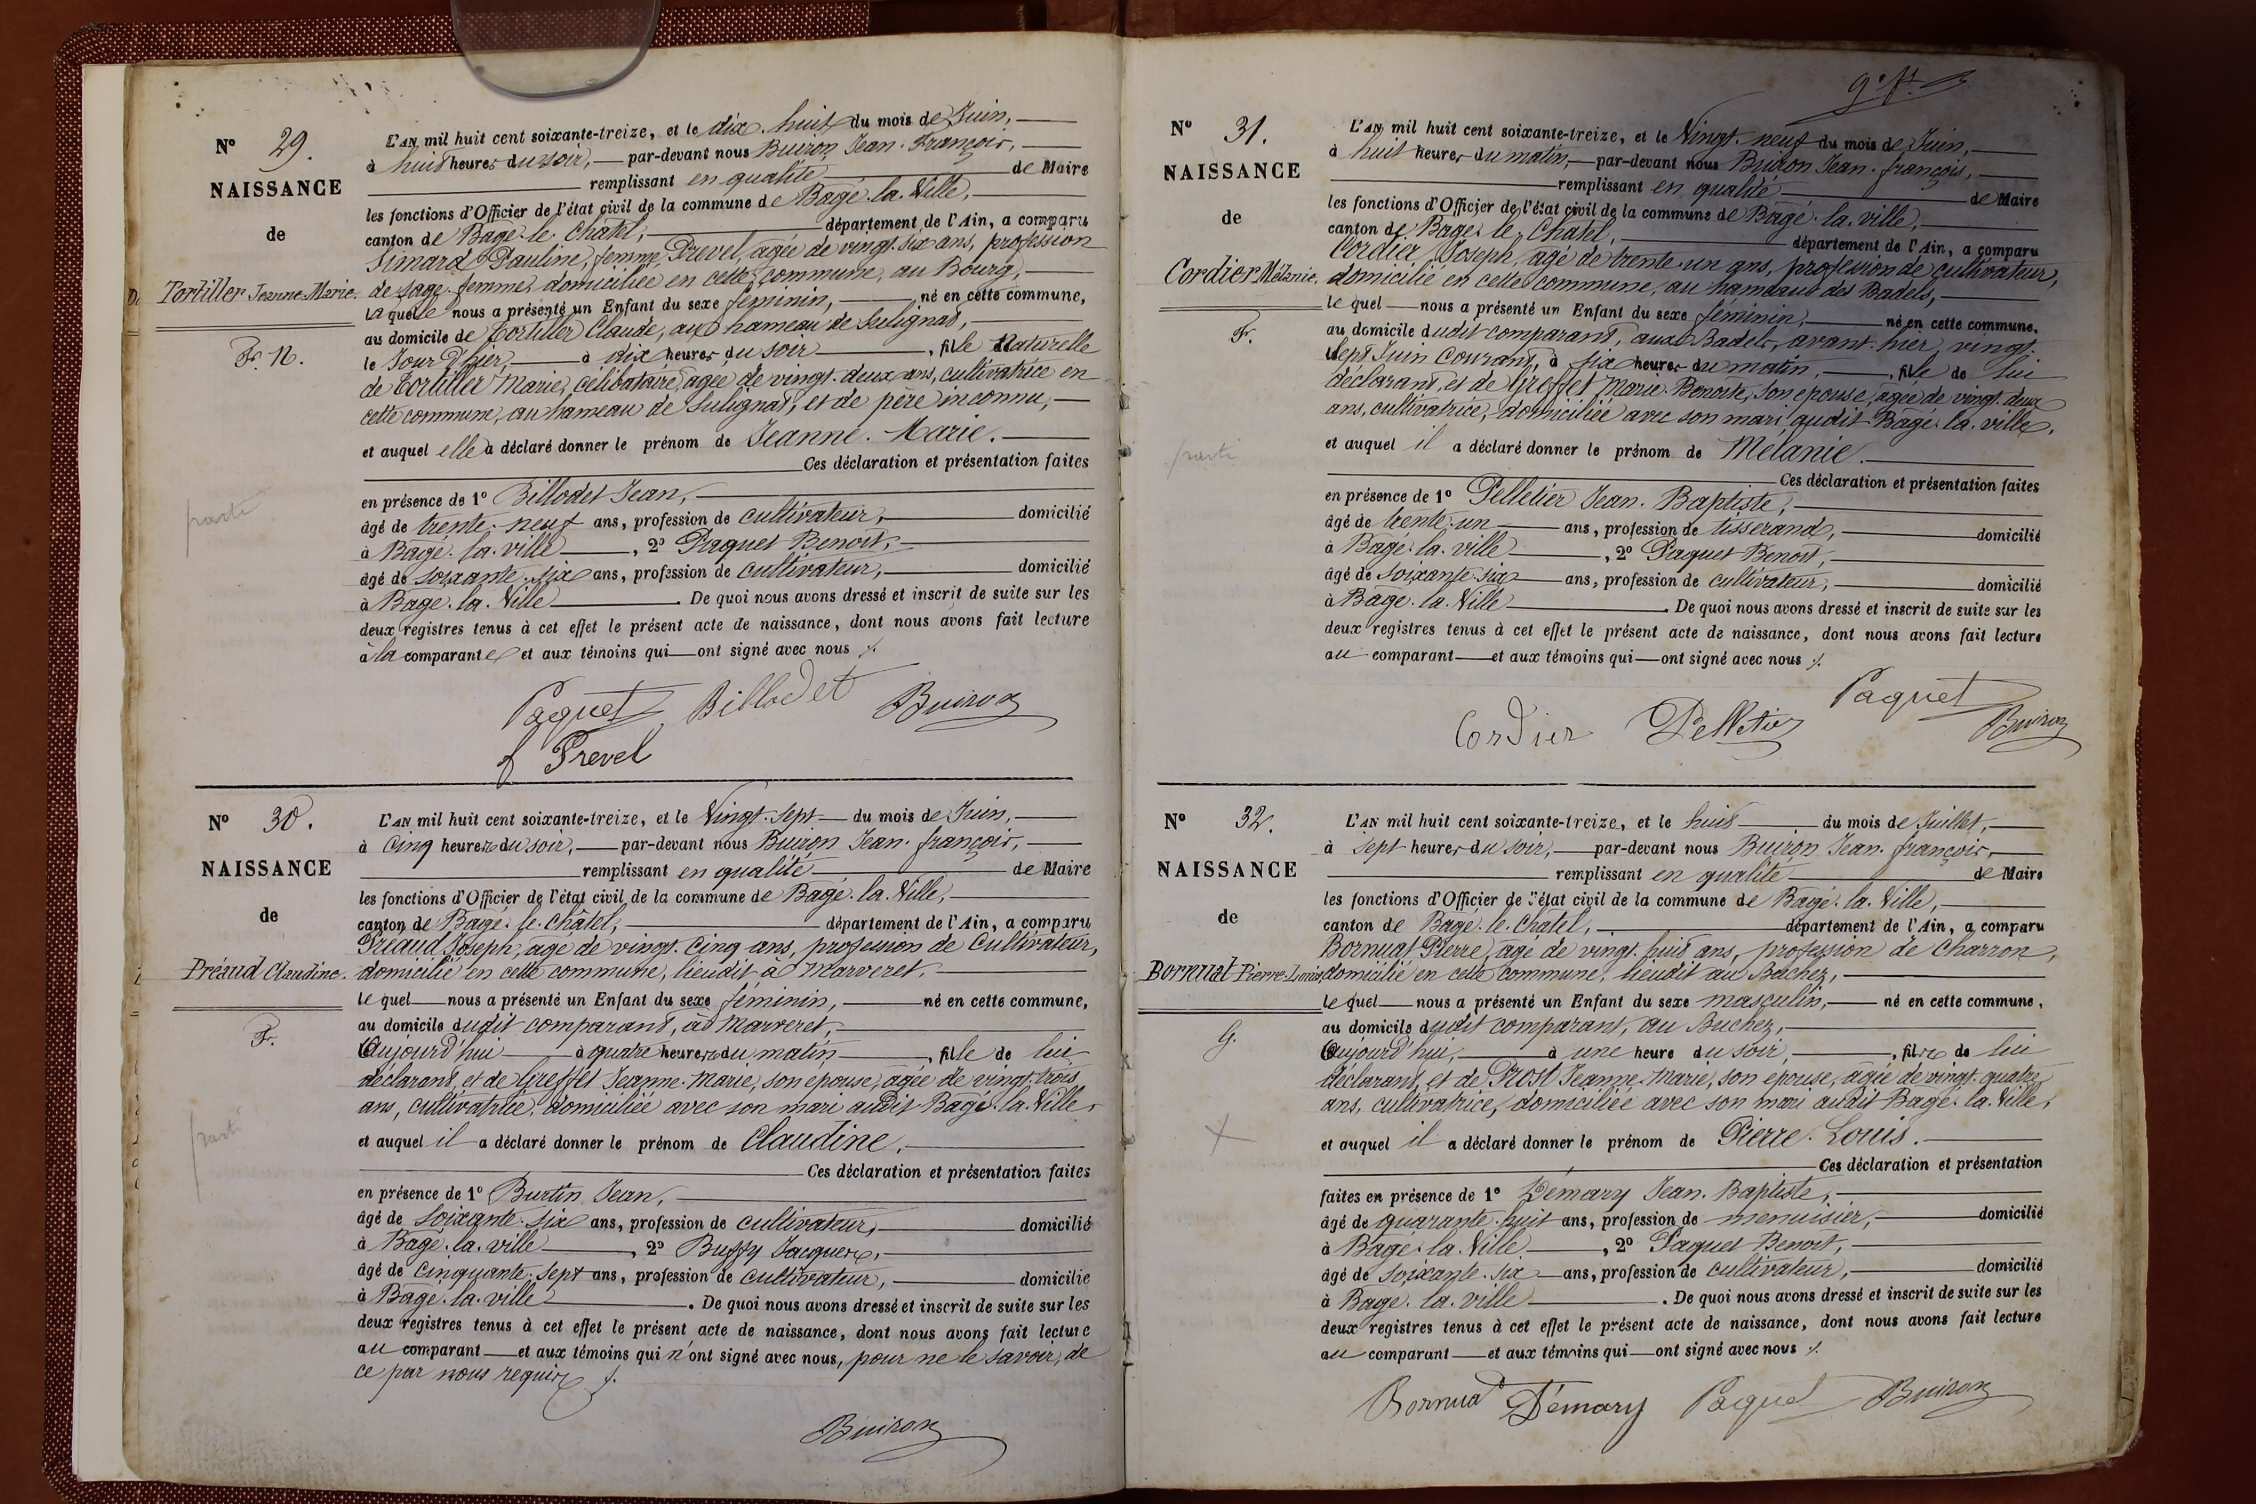 N° 29.
NAISSANCE
de
Tortiller Jeanne-Marie.
F. N.
parti
L'AN mil huit cent soixante-treize, et le dix-huit du mois de Juin,
à huit heures du soir, par-devant nous Buiron Jean-François,
remplissant en qualité de Maire
les fonctions d'Officier de l'état civil de la commune de Bagé-la-Ville,
canton de Bagé-le-Châtel, département de l'Ain, a comparu
Simard Pauline, femme Prevel, agée de vingt-six ans, profession
de sage-femme, domiciliée en cette commune, au Bourg,
laquelle nous a présenté un Enfant du sexe féminin, né en cette commune,
au domicile de Tortiller Claude, au hameau de Sulignat,
le Jour d'hier, à dix heures du soir, fille Naturelle
de Tortiller Marie, célibataire, agée de vingt-deux ans, cultivatrice en
cette commune, au hameau de Sulignat, et de père inconnu,
et auquel elle a déclaré donner le prénom de Jeanne-Marie.
Ces déclaration et présentation faites
en présence de 1° Billodet Jean,
âgé de trente-neuf ans, profession de cultivateur, domicilié
à Bagé-la-ville, 2° Paquet Benoit,
âgé de soixante-six ans, profession de cultivateur, domicilié
à Bagé-la-Ville. De quoi nous avons dressé et inscrit de suite sur les
deux registres tenus à cet effet le présent acte de naissance, dont nous avons fait lecture
à la comparante et aux témoins qui ont signé avec nous ./.
Paquet Billodet Buiron
f Prevel
N° 30.
NAISSANCE
de
Préaud Claudine.
F.
parti
L'AN mil huit cent soixante-treize, et le Vingt-sept du mois de Juin,
à Cinq heures du soir, par-devant nous Buiron Jean-françois,
remplissant en qualité de Maire
les fonctions d'Officier de l'état civil de la commune de Bagé-la-Ville,
canton de Bagé-le-Châtel, département de l'Ain, a comparu
Préaud Joseph, agé de vingt-cinq ans, profession de Cultivateur,
domicilié en cette commune, lieudit à Marveret,
lequel nous a présenté un Enfant du sexe féminin, né en cette commune,
au domicile dudit comparant, à Marveret,
Aujourd'hui à quatre heures du matin, fille de lui
déclarant, et de Greffet Jeanne-Marie, son épouse, agée de vingt-trois
ans, cultivatrice, domiciliée avec son mari audit Bagé-la-Ville
et auquel il a déclaré donner le prénom de Claudine.
Ces déclaration et présentation faites
en présence de 1° Burtin Jean,
âgé de soixante-six ans, profession de cultivateur, domicilié
à Bagé-la-ville, 2° Buffy Jacques,
âgé de cinquante-sept ans, profession de cultivateur, domicilié
à Bagé-la-ville. De quoi nous avons dressé et inscrit de suite sur les
deux registres tenus à cet effet le présent acte de naissance, dont nous avons fait lecture
au comparant et aux témoins qui n'ont signé avec nous, pour ne le savoir, de
ce par nous requis ./.
Buiron
N° 31.
NAISSANCE
de
Cordier Mélanie.
F.
parti
L'AN mil huit cent soixante-treize, et le Vingt-neuf du mois de Juin,
à huit heures du matin, par-devant nous Buiron Jean-françois,
remplissant en qualité de Maire
les fonctions d'Officier de l'état civil de la commune de Bagé-la-ville,
canton de Bagé-le-Châtel, département de l'Ain, a comparu
Cordier Joseph, agé de trente-un ans, profession de cultivateur,
domicilié en cette commune, au hameau des Badels,
lequel nous a présenté un Enfant du sexe féminin, né en cette commune,
au domicile dudit comparant, aux Badels, avant-hier, vingt-
Sept Juin Courant, à six heures du matin, fille de lui
déclarant, et de Greffet Marie-Benoite, son épouse, agée de vingt-deux
ans, cultivatrice, domiciliée avec son mari, audit Bagé-la-ville,
et auquel il a déclaré donner le prénom de Mélanie.
Ces déclaration et présentation faites
en présence de 1° Pelletier Jean-Baptiste,
âgé de trente-un ans, profession de tisserand, domicilié
à Bagé-la-ville, 2° Paquet Benoit,
âgé de soixante-six ans, profession de cultivateur, domicilié
à Bagé-la-Ville. De quoi nous avons dressé et inscrit de suite sur les
deux registres tenus à cet effet le présent acte de naissance, dont nous avons fait lecture
au comparant et aux témoins qui ont signé avec nous ./.
Cordier Pelletier Paquet Buiron
N° 32.
NAISSANCE
de
Bornuat Pierre-Louis,
G.
L'AN mil huit cent soixante-treize, et le huit du mois de Juillet,
à Sept heures du soir, par-devant nous Buiron Jean-françois,
remplissant en qualité de Maire
les fonctions d'Officier de l'état civil de la commune de Bagé-la-Ville,
canton de Bagé-le-Châtel, département de l'Ain, a comparu
Bornuat Pierre, agé de vingt-huit ans, profession de charron,
domicilié en cette commune, lieudit au Buchez,
lequel nous a présenté un Enfant du sexe masculin, né en cette commune,
au domicile dudit comparant, au Buchez,
Aujourd'hui, à une heure du soir, fils de lui
déclarant, et de Prost Jeanne-Marie, son épouse, agée de vingt-quatre
ans, cultivatrice, domiciliée avec son mari audit Bagé-la-Ville,
et auquel il a déclaré donner le prénom de Pierre-Louis.
Ces déclaration et présentation
faites en présence de 1° Démary Jean-Baptiste,
âgé de quarante-huit ans, profession de menuisier, domicilié
à Bagé-la-Ville, 2° Paquet Benoit,
âgé de soixante-six ans, profession de cultivateur, domicilié
à Bagé-la-ville. De quoi nous avons dressé et inscrit de suite sur les
deux registres tenus à cet effet le présent acte de naissance, dont nous avons fait lecture
au comparant et aux témoins qui ont signé avec nous ./.
Bornuat Démary Paquet Buiron